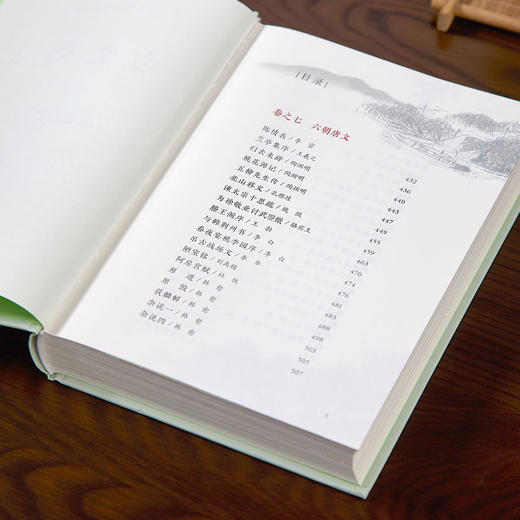 目录
卷之七 六朝唐文
陈情表/李密 432
兰亭集序/王羲之 436
归去来辞/陶渊明 440
桃花源记/陶渊明 444
五柳先生传/陶渊明 447
北山移文/孔稚珪 449
谏太宗十思疏/魏徵 455
为徐敬业讨武曌檄/骆宾王 459
滕王阁序/王勃 463
与韩荆州书/李白 470
春夜宴桃李园序/李白 474
吊古战场文/李华 476
陋室铭/刘禹锡 481
阿房宫赋/杜牧 483
原道/韩愈 488
原毁/韩愈 498
获麟解/韩愈 503
杂说一/韩愈 505
杂说四/韩愈 507